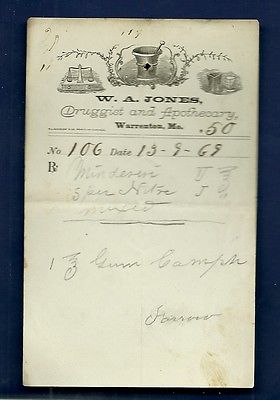 W. A. JONES,
Druggist and Apothecary,
Warrenton, Mo. .50
No 106 Date 13-9-69
R Minderesi V ʒ
Sper Nitre J
mixed
1 ʒ Gum Camph